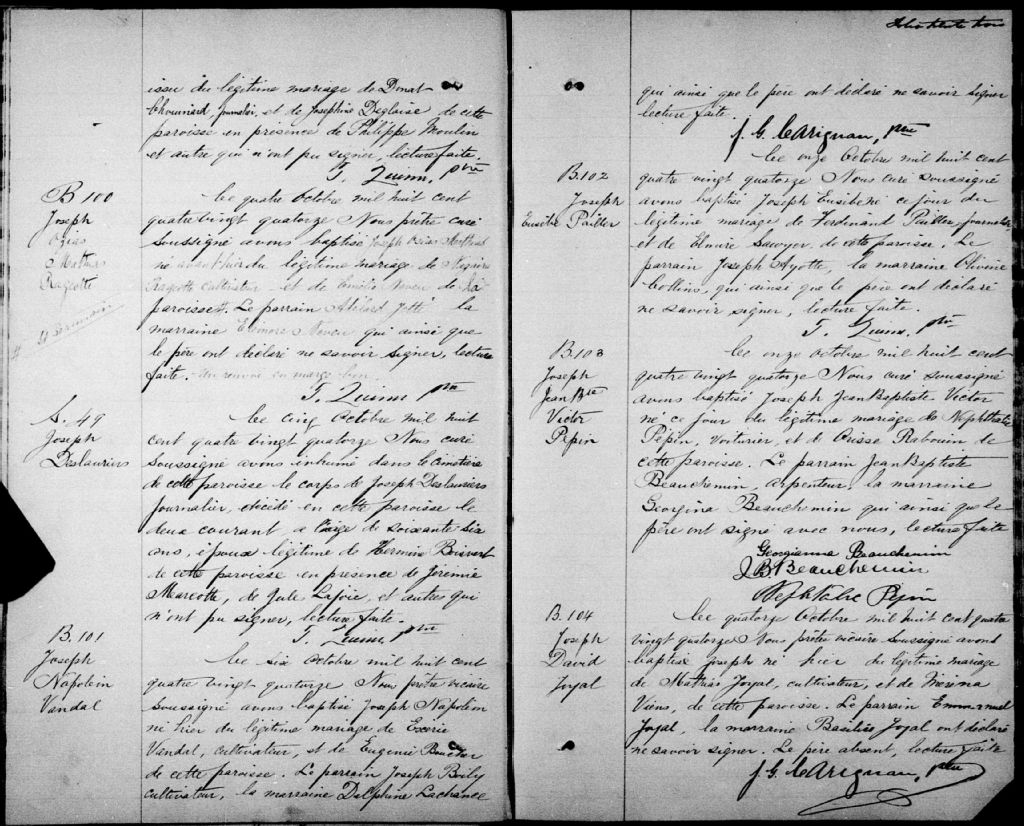 issu du légitime mariage de Donat
Chouinard, journalier, et de Josephine Deglaise de cette
paroisse en présence de Philippe Moulin
et autre qui n'ont pu signer, lecture faite.
T. Quinn, ptre
B 100
Joseph
Ozias
Mathias
Rageotte
Le quatre Octobre mil huit cent
quatre vingt quatorze Nous prêtre curé
soussigné avons baptisé Joseph Ozias Mathias
né avant hier du légitime mariage de
Rageotte cultivateur et de Emélie Neveu de
paroisse. Le parrain Abélard la
marraine Eléonore Neveu qui ainsi que
le père ont déclaré ne savoir signer, lecture
faite. Un renvoi en marge bon.
T. Quinn ptre
S. 49
Joseph
Deslauriers
Le cinq Octobre mil huit
cent quatre vingt quatorze Nous curé
soussigné avons inhumé dans le cimetière
de cette paroisse le corps de Joseph Deslauriers
journalier, décédé en cette paroisse le
deux courant a l'âge de soixante six
ans, époux légitime de Hermine Boisvert
de cette paroisse en présence de Jérémie
Marcotte, de Jule Lajoie, et autres qui
n'ont pu signer, lecture faite.
T. Quinn, ptre
B. 101
Joseph
Napoléin
Vandal
Le six Octobre mil huit cent
quatre vingt quatorze Nous prêtre vicaire
soussigné avons baptisé Joseph Napoléin
né hier du légitime mariage de
Vandal, cultivateur, et de Eugenie Boucher
de cette paroisse. Le parrain Joseph Boily
cultivateur, la marraine Dalphine Lachance
qui ainsi que le père ont déclaré ne savoir signer
lecture faite.
J. G. Carignan, ptre
B. 102
Joseph
Eusèbe Paillé
Le onze Octobre mil huit cent
quatre vingt quatorze Nous curé soussigné
avons baptisé Joseph Eusèbe né ce jour du
légitime mariage de Ferdinand journalier
et de Elmire Sawyer, de cette paroisse. Le
parrain Joseph Ayotte, la marraine Olivine
Collins, qui ainsi que le père ont déclaré
ne savoir signer, lecture faite.
T. Quinn, ptre
B. 103
Joseph
Jean Bte
Victor
Pépin
Le onze Octobre mil huit cent
quatre vingt quatorze Nous curé soussigné
avons baptisé Joseph Jean Baptiste Victor
né ce jour du légitime mariage de Nephthalie
Pépin, Voiturier, et de Orisse Rabouin de
cette paroisse. Le parrain Jean Baptiste
Beauchemin, arpenteur, la marraine
Georgina Beauchemin qui ainsi que le
père ont signé avec nous, lecture faite
Georgianna Beauchemin
J B Beauchemin
Pepin
B. 104
Joseph
David
Joyal
Le quatorze Octobre mil huit cent quatre
vingt quatorze Nous prêtre vicaire soussigné avons
baptisé Joseph né hier du légitime mariage
de Mathias Joyal, cultivateur, et de
Viens, de cette paroisse. Le parrain Emmanuel
Joyal, la marraine Basilise Joyal ont déclaré
ne savoir signer. Le père absent, lecture faite
J. G. Carignan, ptre